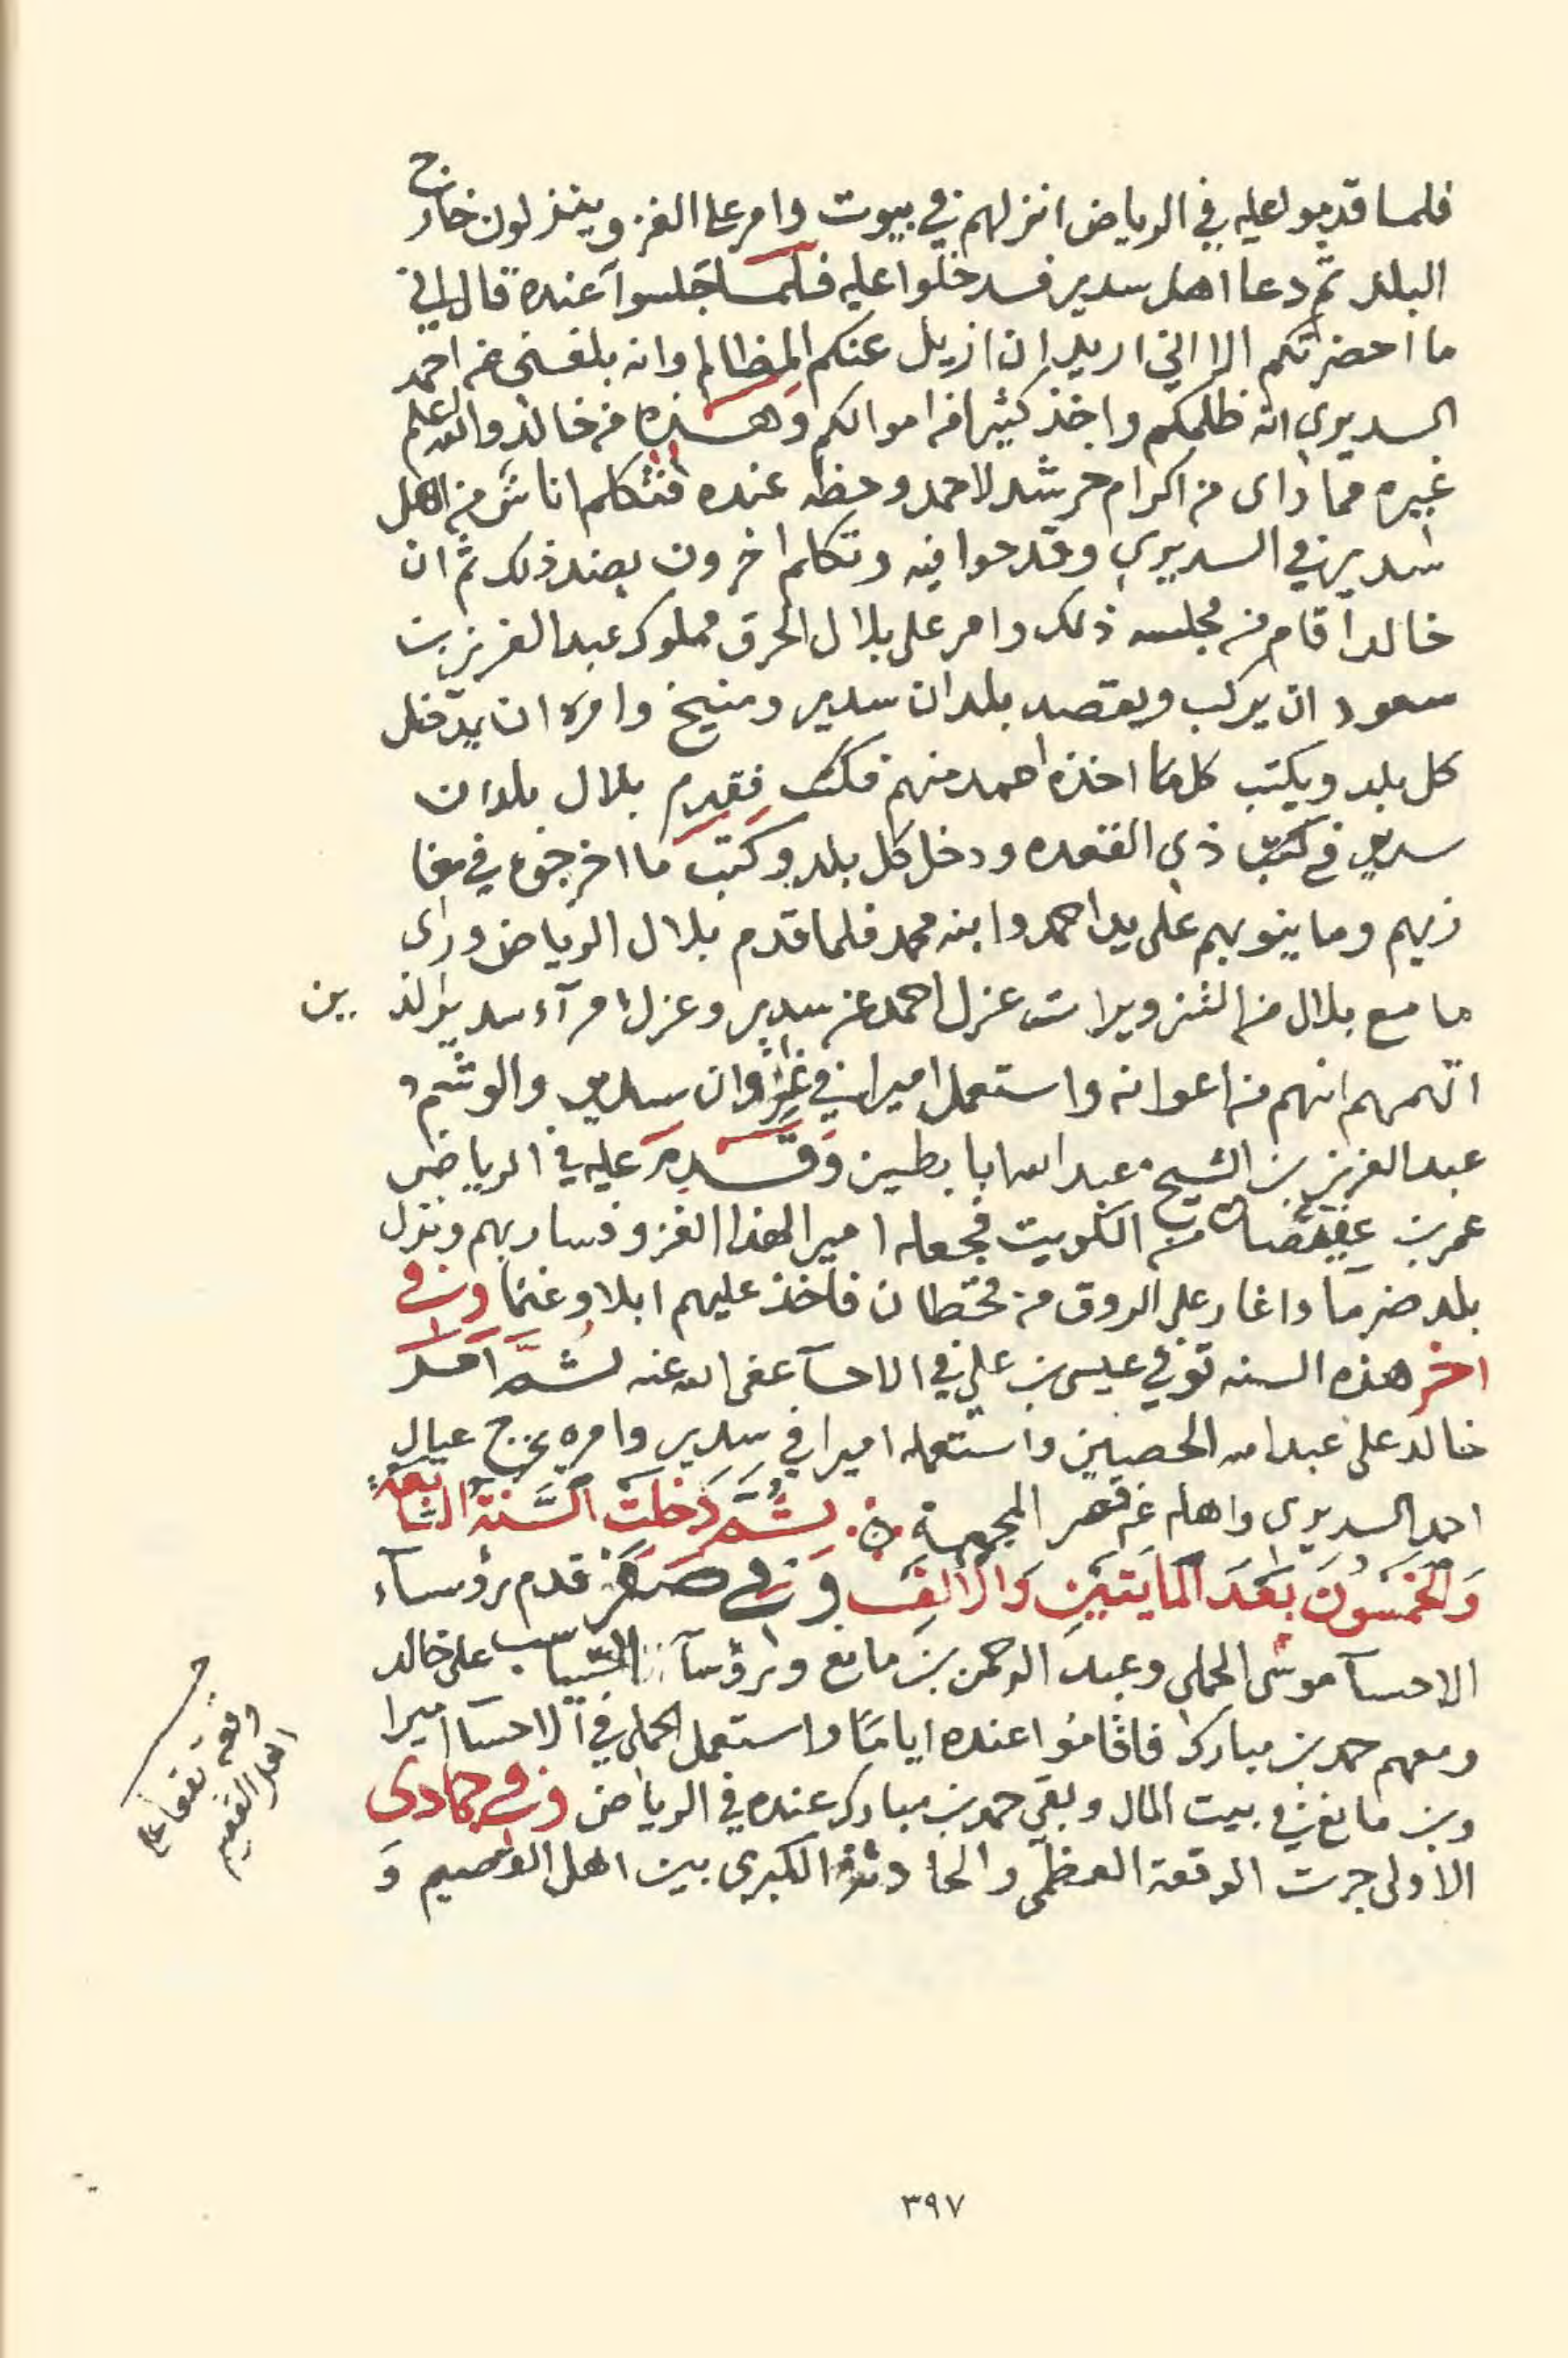 فلما قدموا عليه في الرياض انزلهم في بيوت وامر على الغزو ينزلون خارج
البلد ثم دعا اهل سدير فدخلوا عليه فلما جلسوا عنده قال اني
ما احضرتكم الا اني اريد ان ازيل عنكم المظالم وانه بلغني عن احمد
السديري انه ظلمكم واخذ كثيرا من اموالكم وهذه من خالد والله اعلم
غيره مما راى من اكرام خرشد لاحمد وحظه عنده فتكلم اناس من اهل
سدير في السديري وقدحوا فيه وتكلم اخرون بضد ذلك ثم ان
خالدا قام من مجلسه ذلك وامر على بلال الحرق مملوك عبدالعزيز بن
سعود ان يركب ويقصد بلدان سدير ومنيخ وامره ان يدخل
كل بلد ويكتب كل ما اخذه احمد منهم فقدم بلال بلدان
سدير في ذي القعده ودخل كل بلد وكتب ما اخرجوه في مغا
زيهم وما ينوبهم على يد احمد وابنه محمد فلما قدم بلال الرياض وراى
ما مع بلال من التزويرات عزل احمد عن سدير وعزل امرآء سدير الذ ين
اتهمهم انهم من اعوانه واستعمل اميرا في غزوان سدير والوشم
عبدالعزيز بن الشيخ عبدالله ابا بطين وقدم عليه في الرياض
عمر بن عفيصان من الكويت فجعله اميرا لهذا الغزو فسار بهم ونزل
بلد ضرما واغار على الروق من قحطان فاخذ عليهم ابلا وغنما وفي
اخر هذه السنه توفي عيسى بن علي في الاحسآ عفى الله عنه ثم امر
خالد على عبدالله الحصين واستعمله اميرا في سدير وامره يخرج عيال
احمد السديري واهله عن قصر المجمعة ثم دخلت السنة السابعة
والخمسون بعد المايتين والالف وفي صفر قدم رؤسآء
الاحسآ موسى الحملي وعبد الرحمن بن مانع ورؤسآ السياسب على خالد
ومعهم حمد بن مبارك فاقاموا عنده اياما واستعمل الحملي في الاحسآ اميرا
وبن مانع في بيت المال وبقي حمد بن مبارك عنده في الرياض وفي جمادى
الاولى جرت الوقعة العظمى والحادثة الكبرى بين اهل القصيم و
وقعة بقعا على
اهل القصيم
٣٩٧